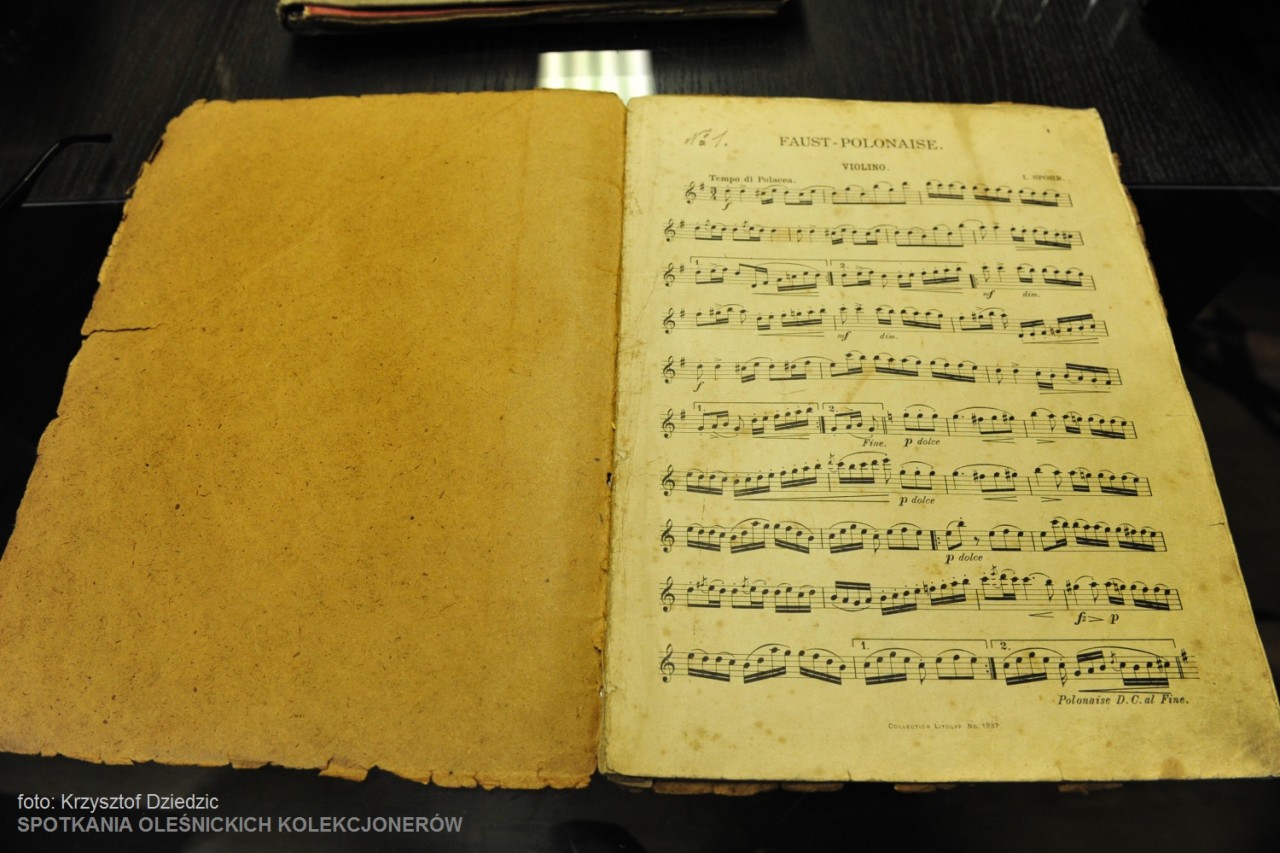 Nº 1.
FAUST-POLONAISE.
VIOLINO.
Tempo di Polacca.
L. SPOHR.
f
1.
2.
mf
dim.
mf
dim.
f
1.
2.
Fine.
p dolce
p dolce
p dolce
fz
p
1.
2.
Polonaise D.C. al Fine.
COLLECTION LITOLFF No. 1937
foto: Krzysztof Dziedzic
SPOTKANIA OLEŚNICKICH KOLEKCJONERÓW